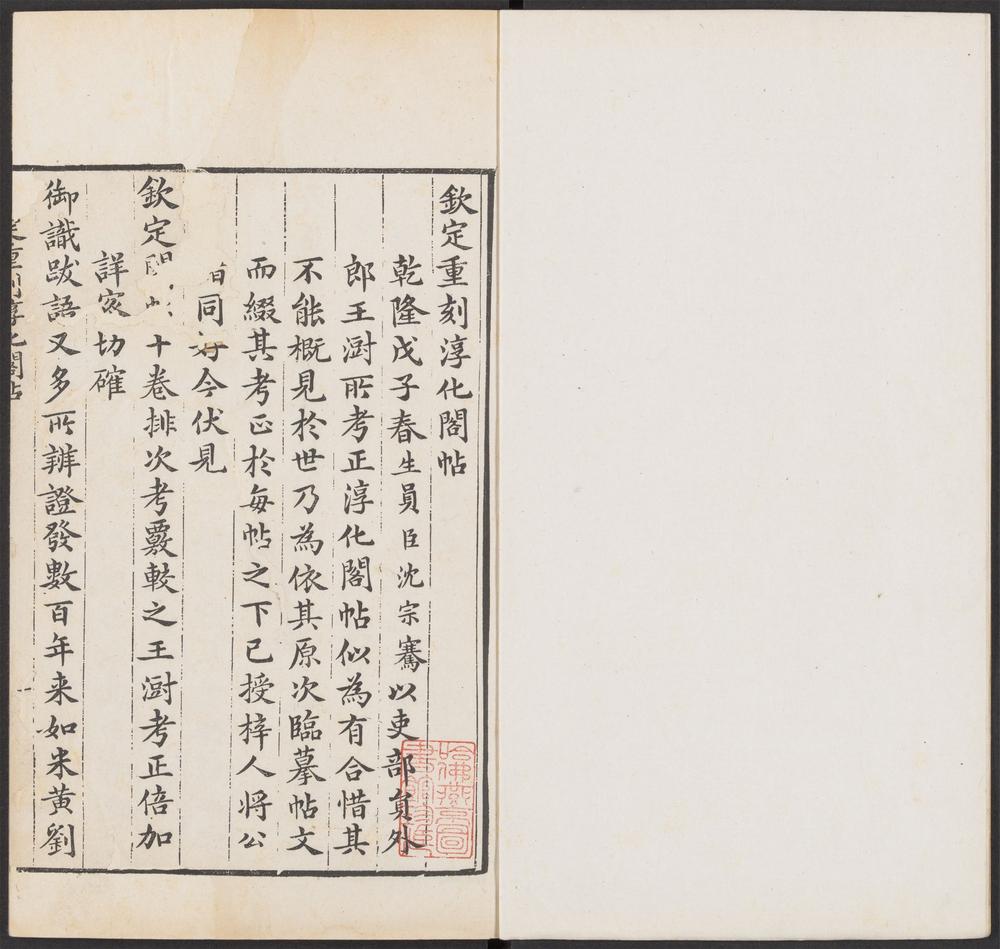 欽定重刻淳化閣帖
乾隆戊子春生員臣沈宗騫以吏部員外
郎王澍所考正淳化閣帖似為有合惜其
不能概見於世乃為依其原次臨摹帖文
而綴其考正於每帖之下已授梓人將公
同好今伏見
欽定 十卷排次考覈較之王澍考正倍加
詳密切確
御識跋語又多所辨證發數百年来如米黃劉
定重刻淳化閣帖
一
哈佛燕京圖
書館珍藏